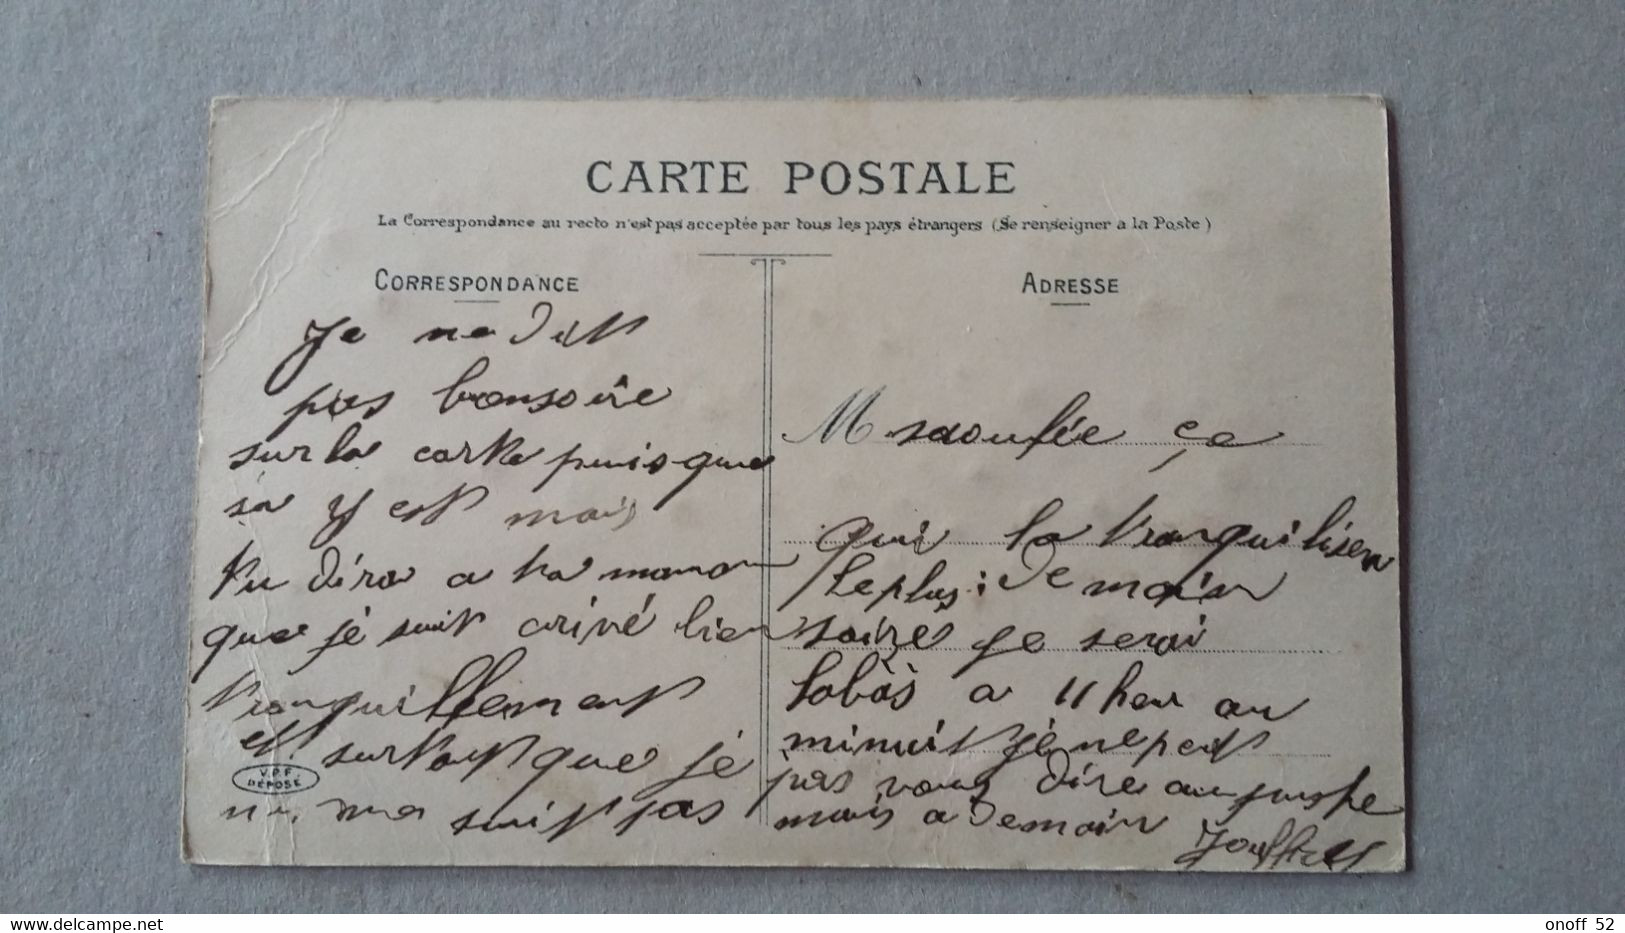 CARTE POSTALE
La Correspondance au recto n'est pas acceptée par tous les pays étrangers (Se renseigner a la Poste)
CORRESPONDANCE
Je ne dit
pas bonsoire
sur la carte puisque
sa y est mais
tu dira a ta maman
que je suit arivé bien
tranquillement
et surtout que je
ne me suit pas
V.P.F.
DÉPOSÉ
ADRESSE
M ça
qui la tranquilisera
le plus: Demain
soire je serai
labàs a 11 heur au
minuit je ne peut
pas vous dire au juste
mais a demain
onoff 52
www.delcampe.net